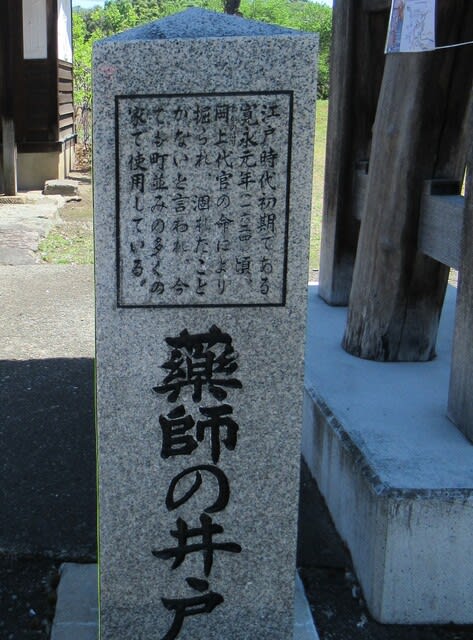 江戸時代初期である
寛永元年(一六二四)頃、
岡上代官の命により
掘られ、涸れたこと
がないと言われ、今
でも町並みの多くの
家で使用している。
薬師の井戸